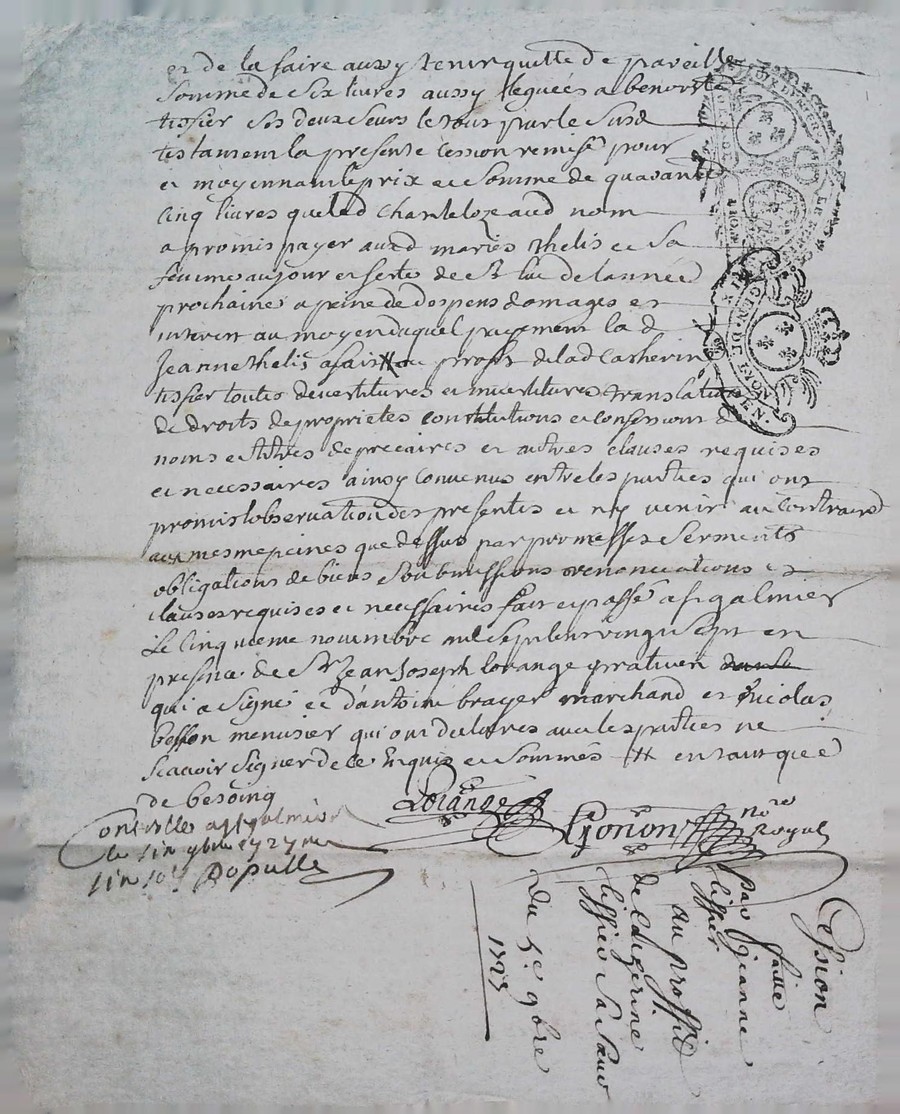 et de la faire aussy tenir quitte de pareille
somme de six livres aussy leguées a benoiste
tissier ses deux seurs le tout par le susd
testament la presente cession remise pour
et moyennant le prix et somme de quarante
cinq livres que led Chanteloze aud nom
a promis payer aud mariés thelis et sa
femme au jour et feste de St luc de lannée
prochaine a peine de despens domages et
interest au moyen duquel payement la d
Jeanne thelis a fait au proffit de lad Catherine
tissier toutes devetitures et investitures translation
de droits de proprietes constitutions et
noms et titres de precaires et autres clauses requises
et necessaires ainsy convenus entre les parties qui ont
promis lobservation des presentes et ny venir au Contraire
aux mesme peines que dessus par promesses Serments
obligations de biens soubmissions renonciations et
clauses requises et necessaires fait et passé a st galmier
Le cinquieme novembre mil sept cent vingt sept en
presence de Sr Jean Joseph lorange praticien
qui a signé et d'antoine brayer marchand et Nicolas
besson menusier qui ont avec les parties ne
scavoir signer de ce Enquis et sommés en tant que
de besoing
Lorange
Gonon nre Royal
Controllé a st galmier
le sin 9bre 1727
sin sols Papulle
GEN. DE LYON
Cession
faitte
par Jeanne
tissier
au proffit
de Catherine
tissier sa seur
Du 5e 9bre
1727